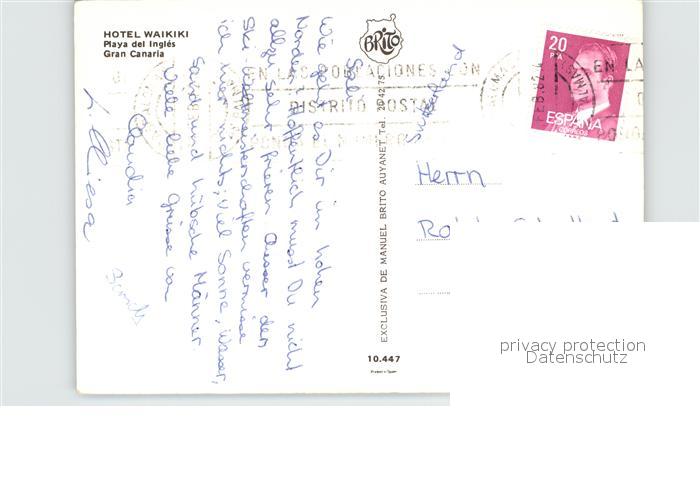 HOTEL WAIKIKI
Playa del Inglés
Gran Canaria
BRITO
20
PTA
ESPAÑA
CORREOS
EN LAS POBLACIONES CON
DISTRITO POSTAL
EN LA
EXCLUSIVA DE MANUEL BRITO AUYANET. Tel.
10.447
Wie geht es Dir im hohen
Norden? Hoffentlich musst Du nicht
allzu sehr frieren. Ausser den
Ski-Weltmeisterschaften vermisse
ich hier nichts; Viel Sonne, Wasser,
Sand und hübsche Männer.
Viele liebe Grüsse von
Claudia
Herrn
privacy protection
Datenschutz